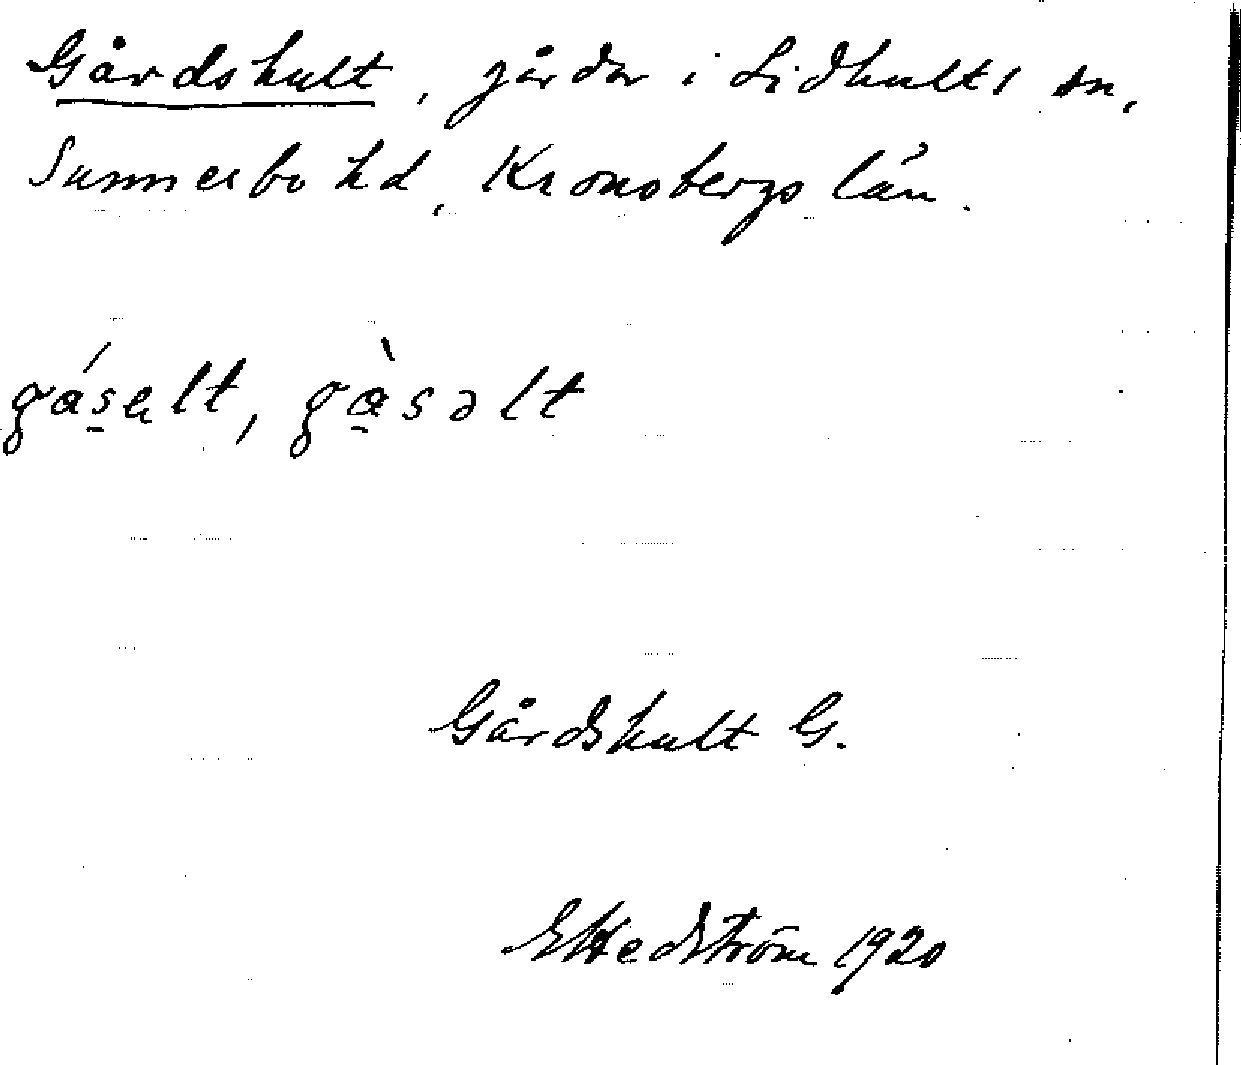 Gårdshult, gårdar i Lidhults sn,
Sunnerbo hd, Kronobergs län.
gásalt, gàsəlt
Gårdshult G.
E Hedström 1920